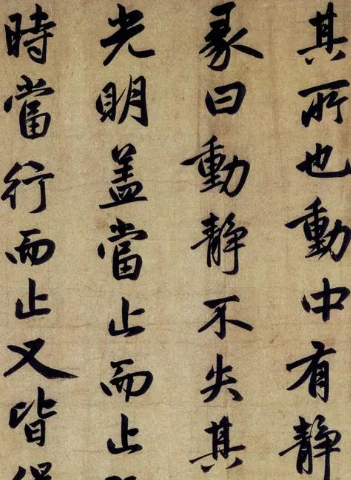 其所也動中有静
彖曰動静不失其
光明盖當止而止
時當行而止又皆